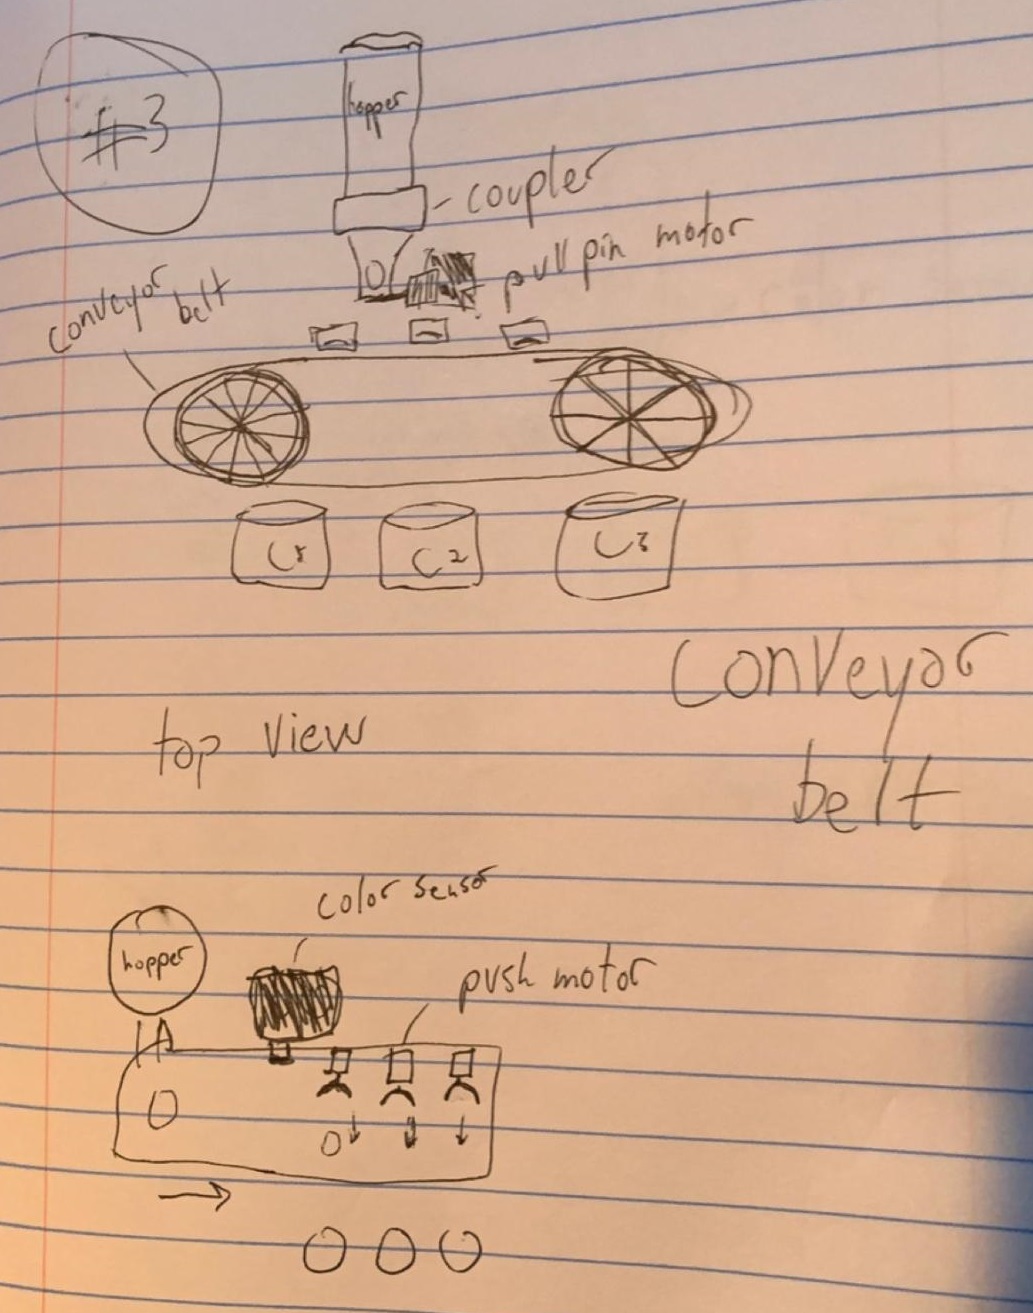 #3
hopper
coupler
pull pin motor
conveyor
belt
C1
C2
C3
Conveyor
belt
top view
color sensor
hopper
push motor